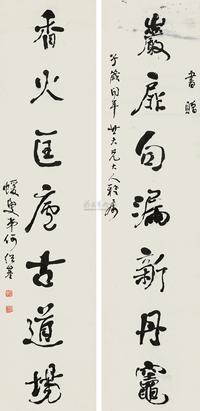 書贈
巖扉句漏新丹竈
子箴同年廿六兄大人雅屬
香火匡廬古道場
蝯叟弟何紹基